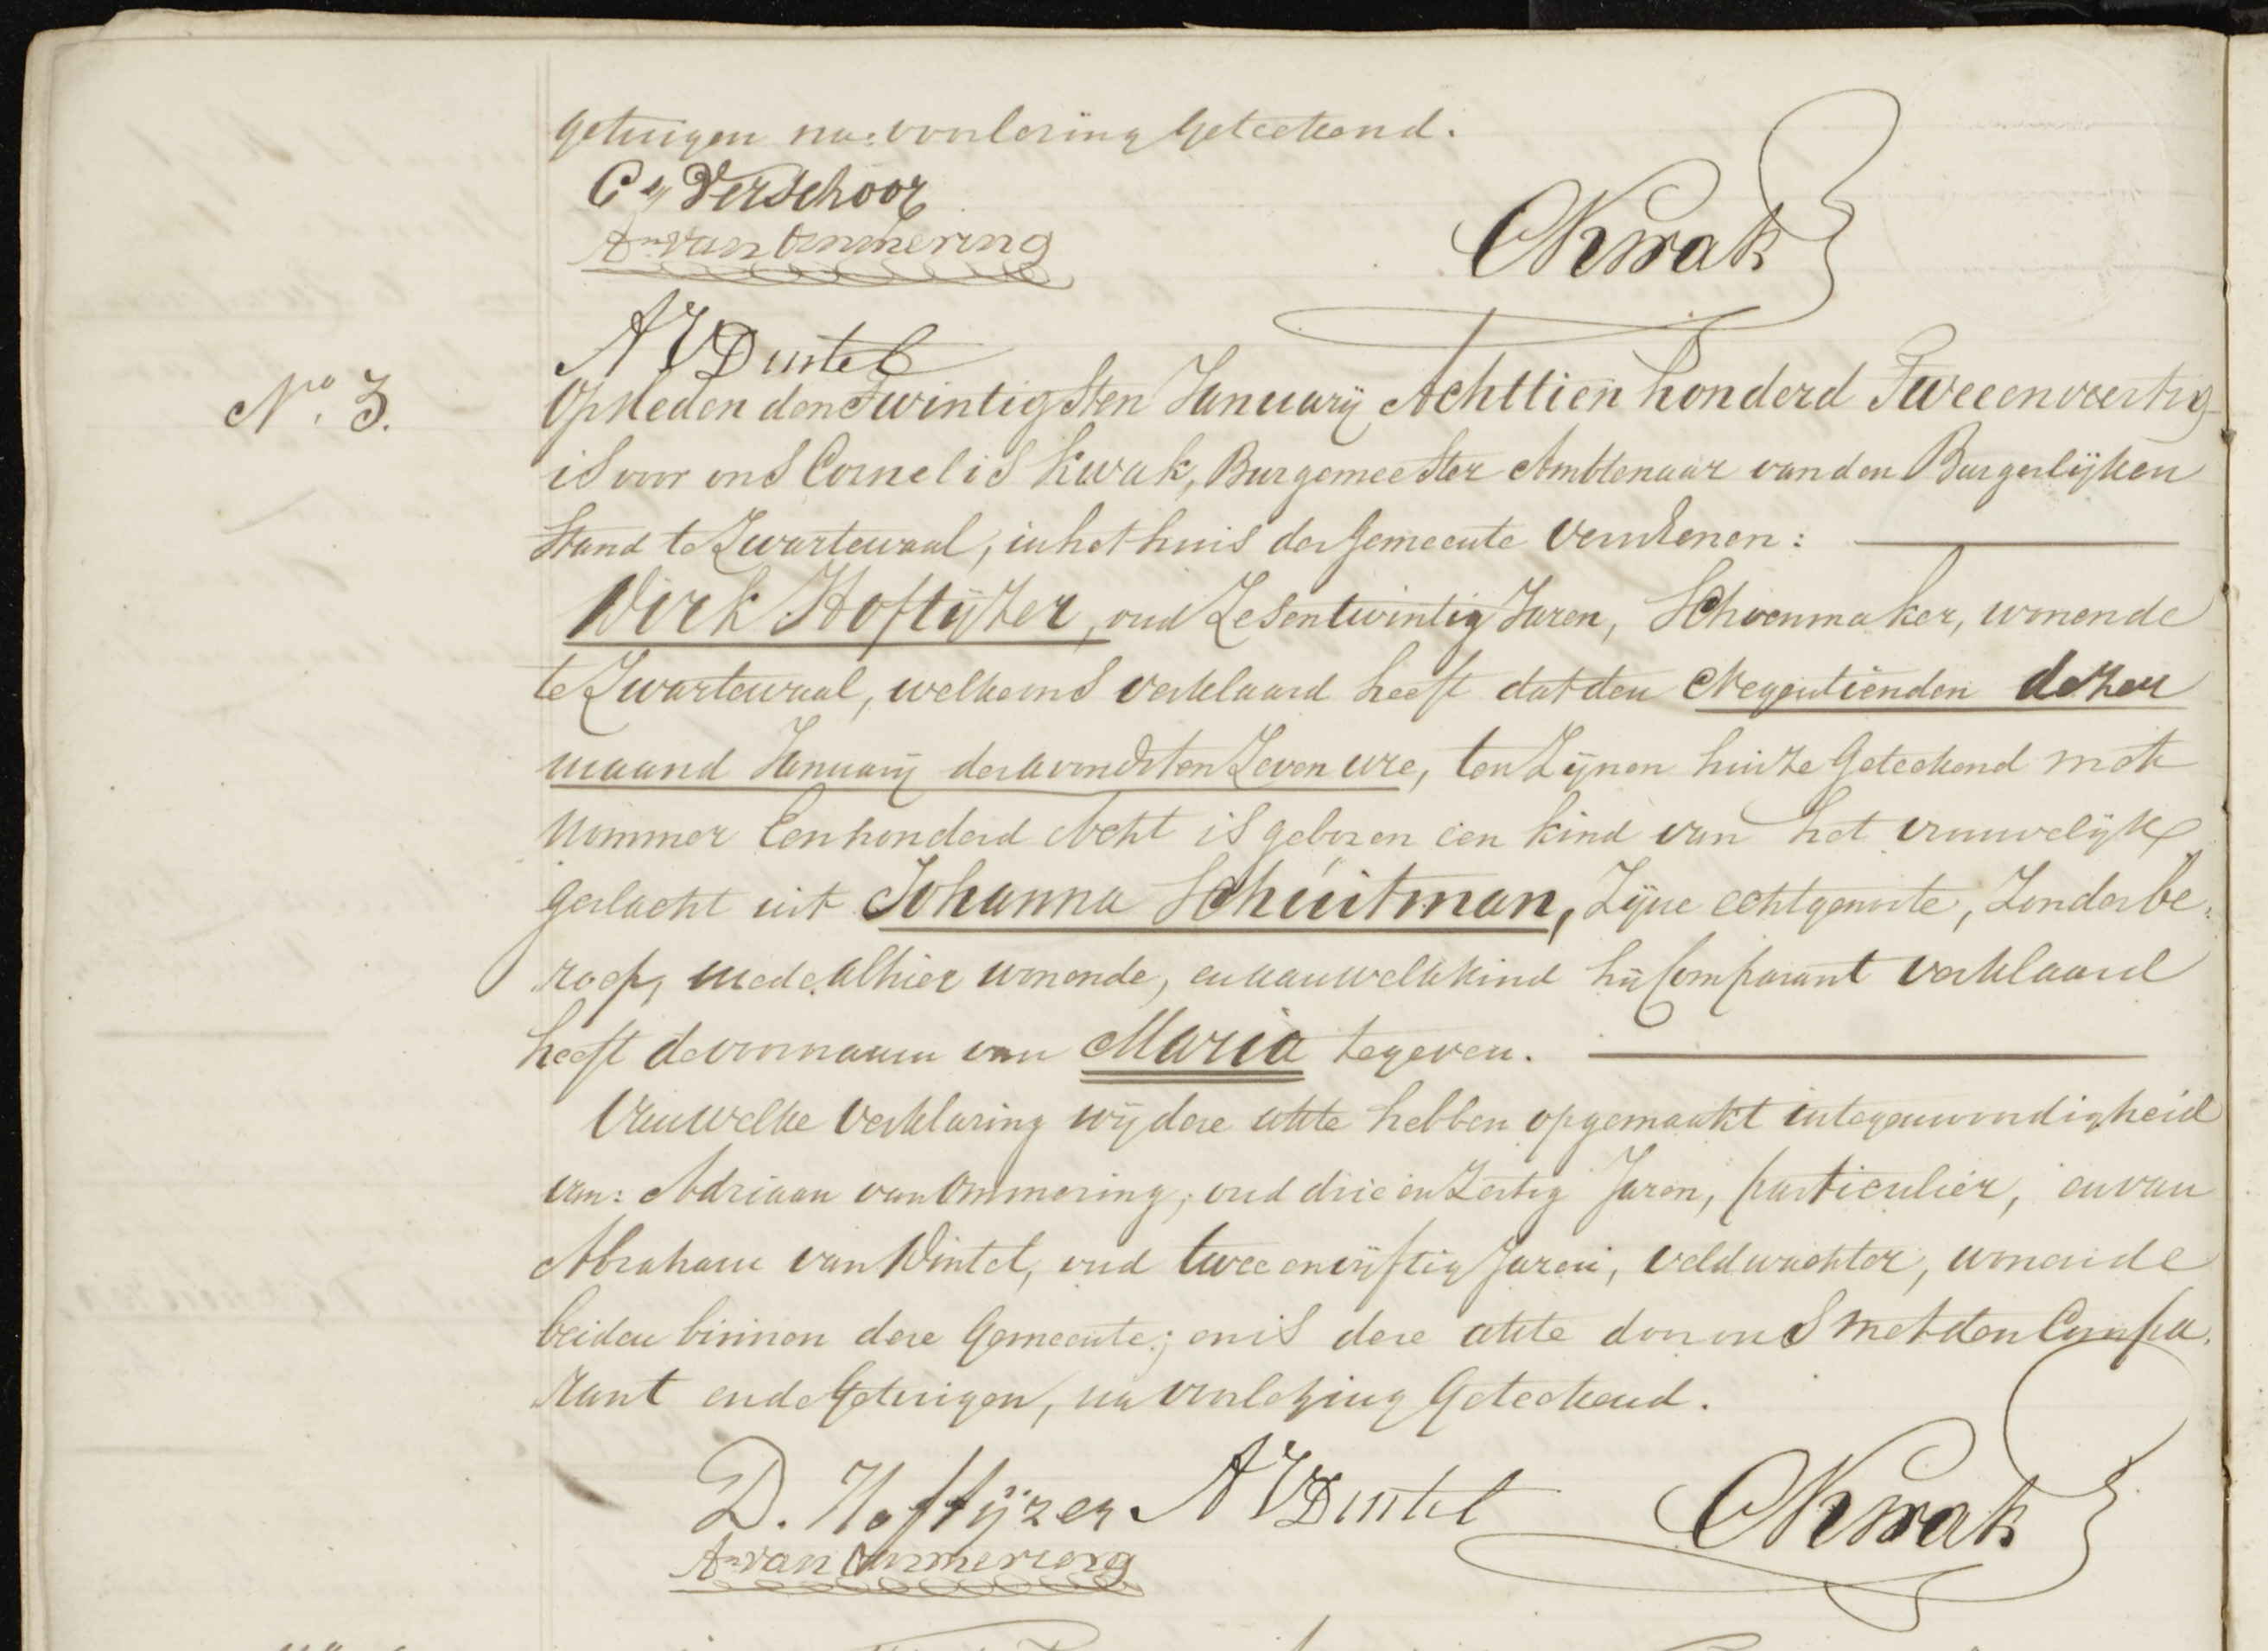 getuigen na voorlesing geteekend.
Cs Verschoor
An van Ommering
CKwak
AVDintel
No. 3.
Op Heden den Twintigsten Januarij Achttien honderd Tweeenveertig
is voor ons Cornelis Kwak, Burgemeester Ambtenaar van den Burgerlijken
Stand te Zwartewaal, in het huis der Gemeente verschenen:
Dirk Hoftijzer, oud Zesentwintig Jaren, Schoenmaker, wonende
te Zwartewaal, welke ons verklaard heeft dat den Negentienden dezer
maand Januarij des avonds ten Zeven ure, ten Zijnen huize Geteekend met
Nommer Eenhonderd Acht is geboren een kind van het vrouwelijk
geslacht uit Johanna Schuitman, Zijne echtgenoote, Zonder be-
roep, mede alhier wonende, en aan welk kind hij Comparant verklaard
heeft de voornaam van Maria te geven.
Van welke verklaring wij deze akte hebben opgemaakt in tegenwoordigheid
van: Adriaan van Ommering, oud drie en Zestig Jaren, particulier, en van
Abraham van Dintel, oud twee en vijftig Jaren, veldwachter, wonende
beiden binnen deze Gemeente; en is deze akte door ons met den Compa-
rant en de Getuigen, na voorlezing Geteekend.
D. Hoftijzer AVDintel CKwak
An van Ommering